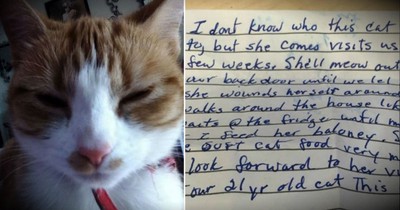 I don't know who this cat
to, but she comes visits us
few weeks. She'll meow out
our back door until we let
she wounds herself around
walks around the house lik
@ the fridge until m
I feed her baloney. S
cat food very m
look forward to her vi
our 21 yr old cat This